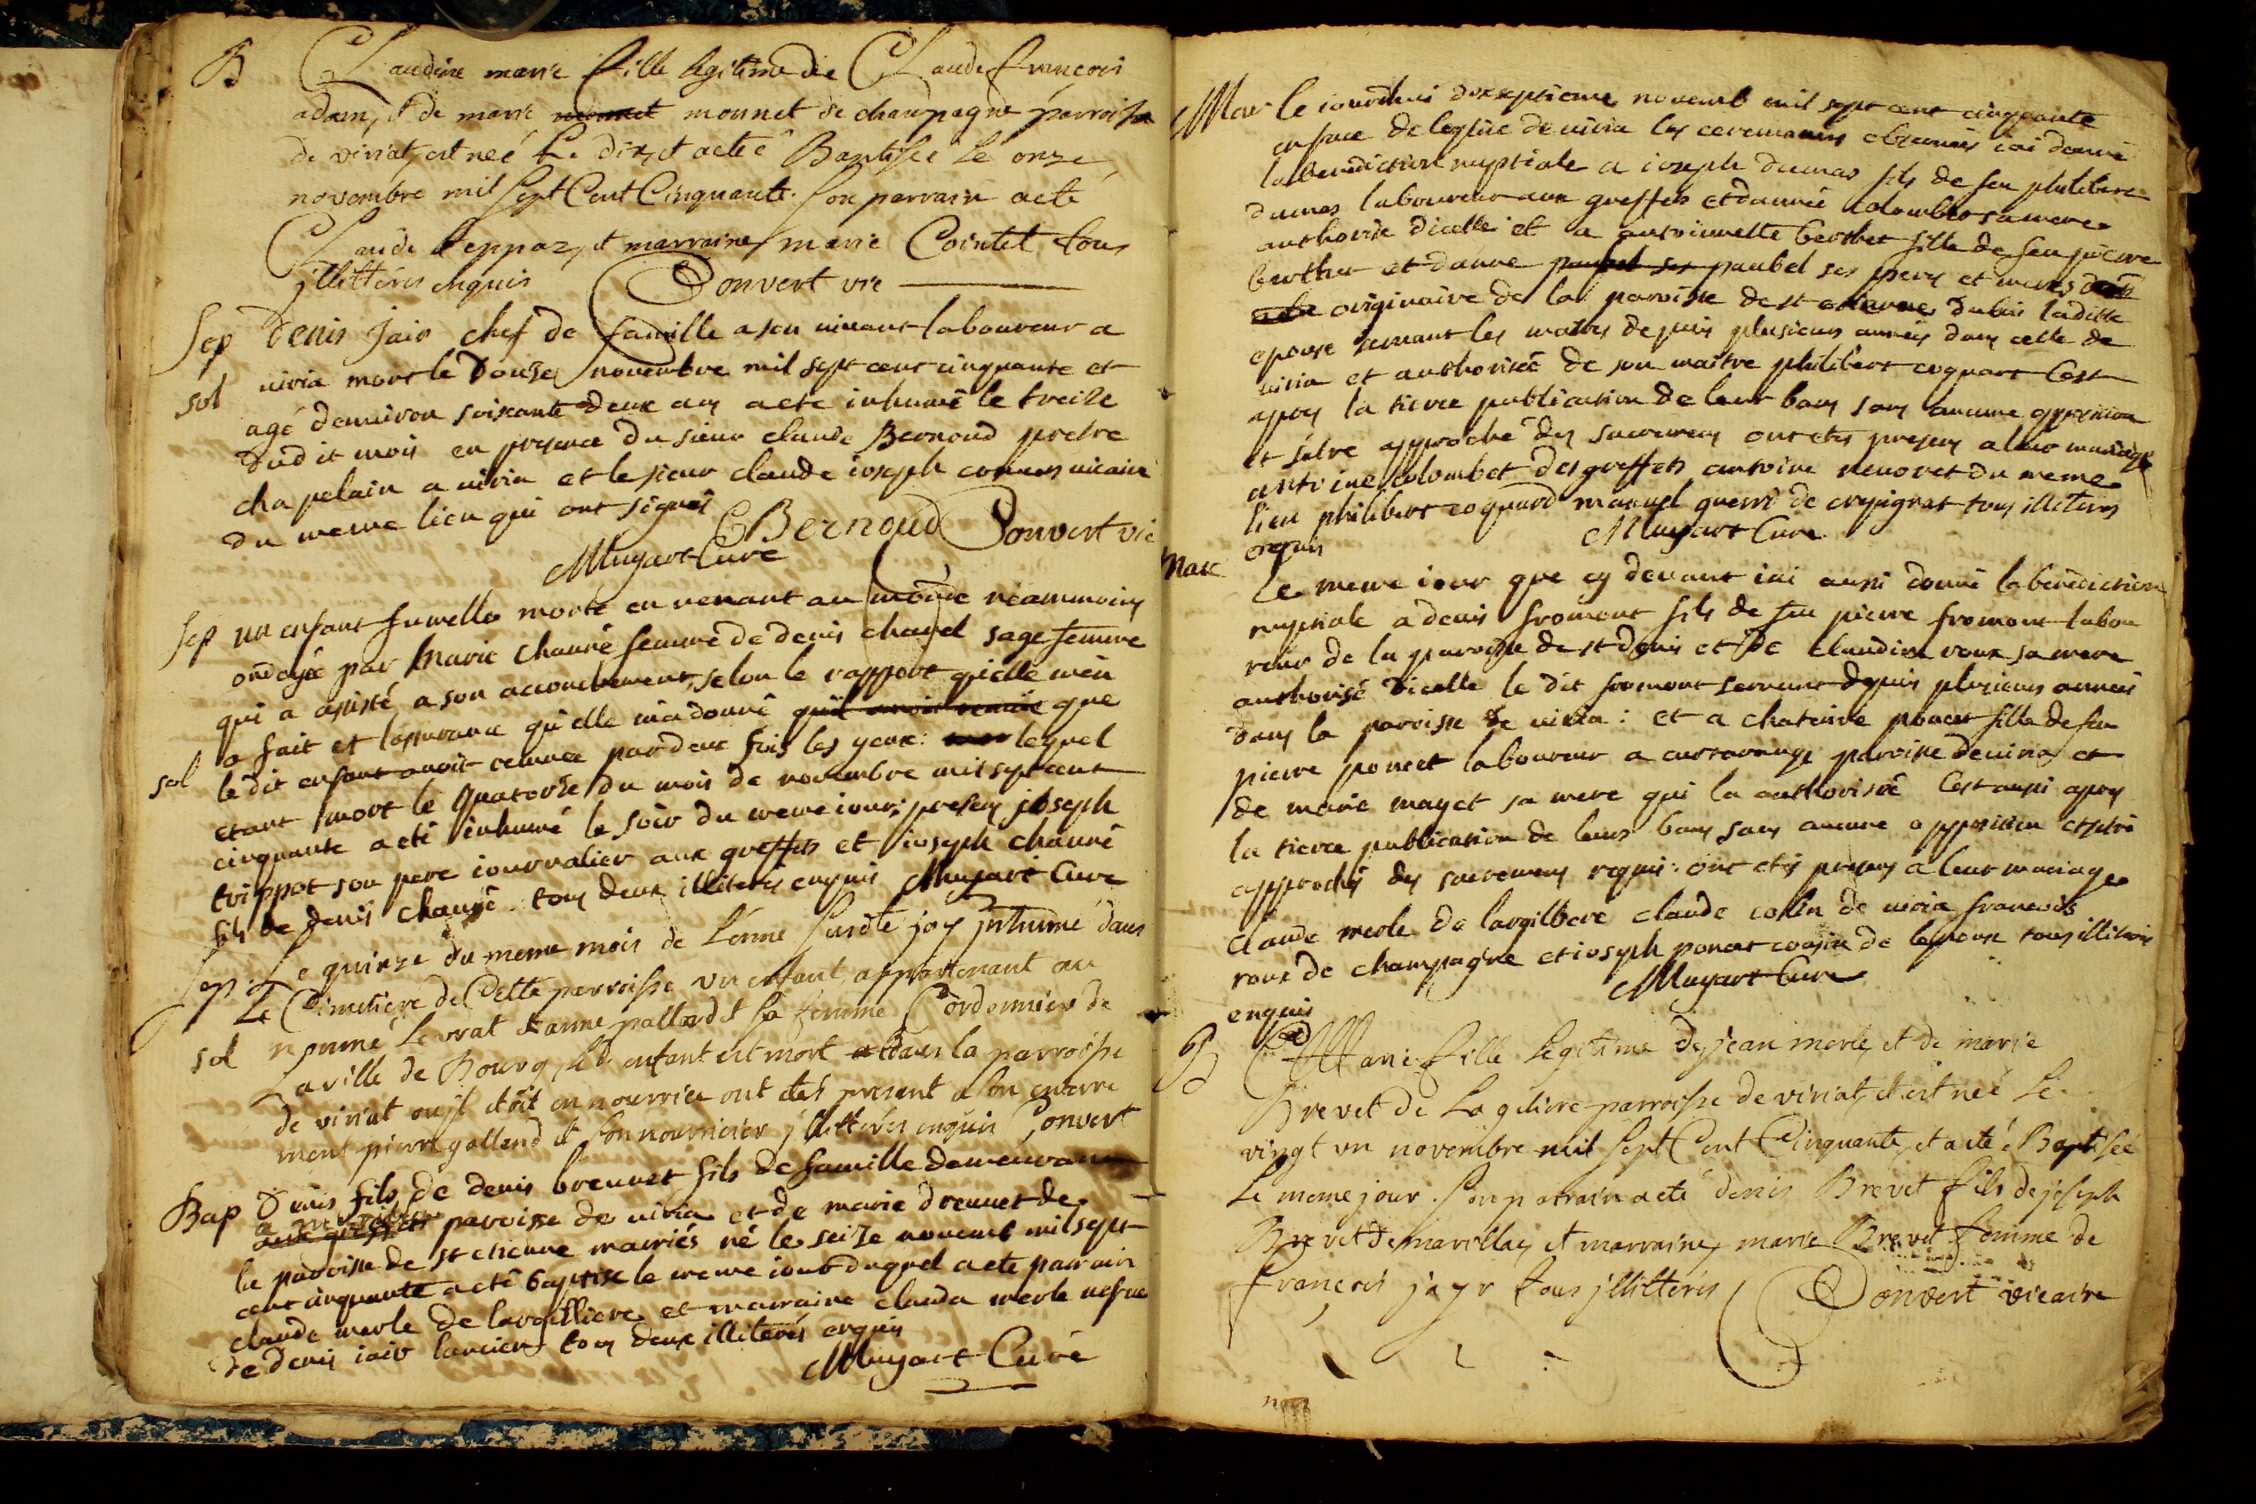 B Claudine marie fille legitime de Claude françois
adam, et de marie monnet de champagne parroisse
de viriat, est neé Le dix, et a eté Baptisée le onze
novembre mil Sept Cent Cinquante. Son parrain a eté
Claude Seppaz, et marraine marie Cointet tous
jllitterés enquis Convert vic
Sep Denis Jaio chef de famille a son vivant laboureur a
viria mort le Douze novembre mil sept cent cinquante et
Sol
agé denviron soixante deux ans a ete inhumé le treize
dudit mois en presence du sieur claude Bernoud pretre
chapelain a viria et le sieur claude ioseph convers vicaire
du meme lieu qui ont signé CBernoud Convert vic
Muyart Curé
Sep un enfant fumelle morte en venant au monde néammoins
ondoyé par Marie chauné femme de denis chanel sage femme
qui a assisté a son accouchement, selon le rapport quelle men
a fait et lassurance qu'elle m'a donné que
Sol le dit enfant avoit remuée par deux fois les yeux: lequel
etant mort le quatorze du mois de novembre mil sept cent
cinquante a eté inhumé le soir du meme iour: presens joseph
trippoz son pere iournalier aux greffets et ioseph chauné
fils de denis chauné tous deux illiterés enquis Muyart Curé
Sep Le quinze du meme mois de L'anne Susdte j'ay jnhumé dans
Le Cimetiere de Cette parroisse un enfant appartenant au
Sol nommé Leurat et anne pallard Sa femme Cordonnier de
La ville de Bourg, led. enfant est mort dans la parroisse
de viriat ou jl etoit en nourrice ont etés present a Son enterre
ment pierre galland et Son nourricier jllitterés enquis Convert
Bap Denis fils de denis brevnet fils de famille demeurant
a
paroisse de viria et de marie drevnet de
la paroisse de st etienne mariés né le seize novemb mil sept
cent cinquante a eté baptise le meme iour duquel a ete parrain
claude merle de largilliere et marraine clauda merle
de denis iaiv lancien tous deux illiterés enquis
Muyart Curé
Mar Le iourdhui dixseptieme novemb mil sept cent cinquante
en face de leglise de viria les ceremonies observées iai donné
la benediction nuptiale a ioseph dumas fils de feu philibert
dumas laboureur aux greffets et danné colombet sa mere
authorise dicelle: et a antoinnette berthet fille de feu pierre
berthet et danne paubel ses pere et mere
originaire de la paroisse de st etienne dubois ladite
epouse servant les maitres depuis plusieurs années dans celle de
viria et authorisée de son maitre philibert coquart Cest
apres la tierce publication de leur bans sans aucune opposition
et setre approché des sacremens ont etés presens a leur mariage
antoine colombet des greffets antoine renoret du meme
lieu philibert coquard manuel guerri de crepignat tous illiterés
enquis Muyart Cure
Mar Le meme iour que cy devant iai aussi donné la benediction
nuptiale a denis fromont fils de feu pierre fromont labou
reur de la paroisse de st denis et de claudine roux sa mere
authorisé dicelle le dit fromont servant depuis plusieurs années
dans la paroisse de viria: et a chaterine poncet fille de feu
pierre poncet laboureur a curtaringe paroisse de viria et
de marie mayet sa mere qui la authorisée Cest aussi apres
la tierce publication de leurs bans sans aucune opposition et setre
approchés des sacremens requis: ont etés presens a leur mariage
claude merle de largilliere claude colin de viria francois
roux de champagne et ioseph poncet cousin de lepoux tous illiterés
enquis Muyart Cure
B Marie fille Legitime de jean merle, et de marie
Brevet de La geliere parroisse de viriat, est neé Le
vingt un novembre mil Sept Cent Cinquante, et a eté Baptisée
Le meme jour. Son parrain a eté denis Brevet fils de joseph
Brevet de marillac et marraine marie Brevet femme de
François jayr tous jllitterés Convert vicaire